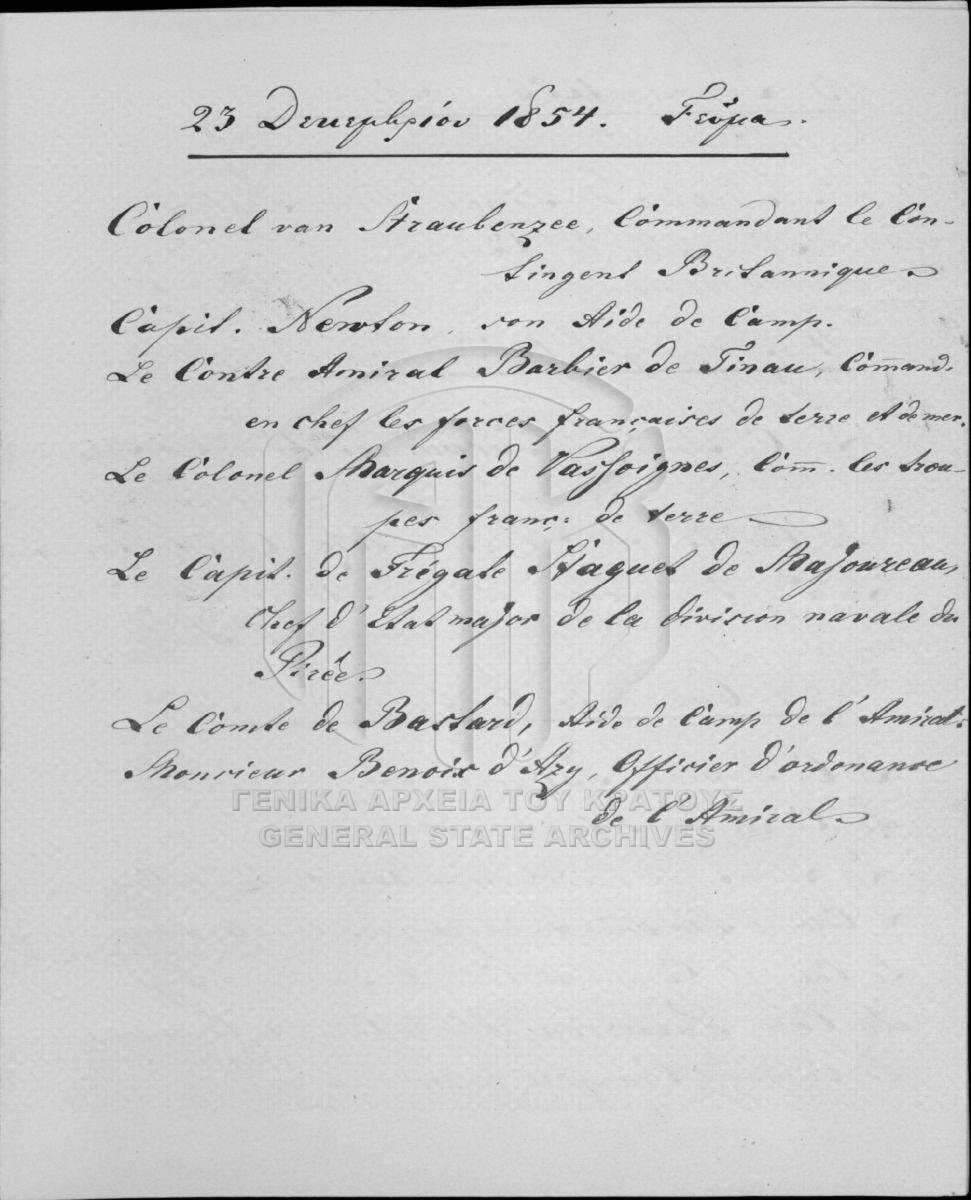 23 Δεκεμβρίου 1854. Γεῦμα.
Colonel van Straubenzee, Commandant le Con-
tingent Britannique
Capit. Newton, son Aide de Camp.
Le Contre Amiral Barbier de Tinau, Com̄and.
en chef les forces françaises de terre et de mer.
Le Colonel Marquis de Vassoignes, Com̄. les trou-
pes franç. de terre
Le Capit. de Frégate Haquet de Majoureau,
Chef d'Etat major de la division navale du
Pirée.
Le Comte de Bastard, Aide de Camp de l'Amiral.
Monsieur Benoix d'Azy, Officier d'ordonance
de l'Amiral
ΓΕΝΙΚΑ ΑΡΧΕΙΑ ΤΟΥ ΚΡΑΤΟΥΣ
GENERAL STATE ARCHIVES